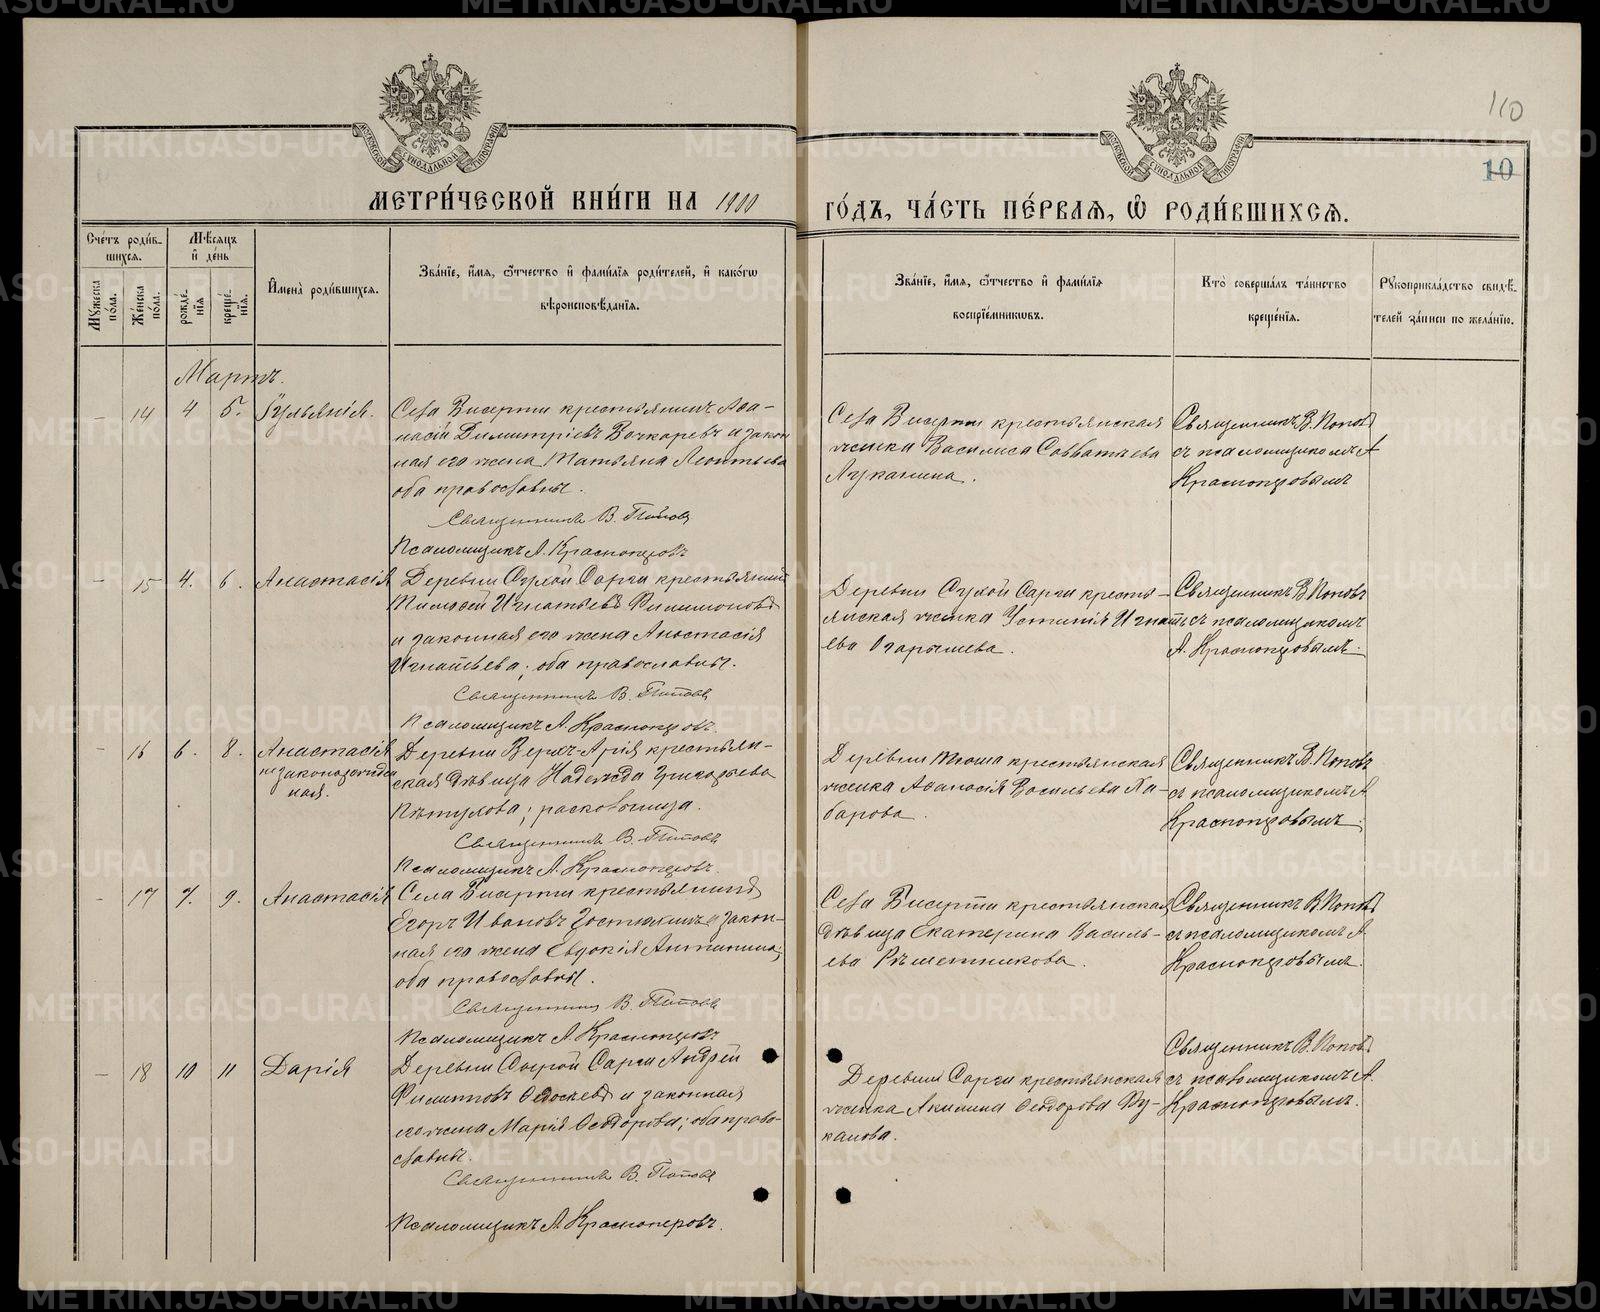 110
10
МОСКОВСКОЙ СѴНОДАЛЬНОЙ ТИПОГРАФІИ
МОСКОВСКОЙ СѴНОДАЛЬНОЙ ТИПОГРАФІИ
МЕТРИ́ЧЕСКОЙ КНИ́ГИ НА 1900
ГО́ДЪ, ЧА́СТЬ ПЕ́РВАЯ, Ѡ РОДИ́ВШИХСЯ.
Сче́тъ роди́вшихся.
Мꙋ́жеска по́ла.
Же́нска по́ла.
Мѣ́сяцъ и҆ де́нь
рожде́нїя
креще́нїя.
И҆мена̀ роди́вшихся.
Зва́нїе, и҆́мя, ѻ҆́тчество и҆ фами́лїя роди́телей, и҆ како́гѡ
вѣроисповѣ́данїя.
Зва́нїе, и҆́мя, ѻ҆́тчество и҆ фами́лїя
воспрїе́мниковъ.
Кто̀ соверша́лъ та́инство
креще́нїя.
Рꙋкоприкла́дство свидѣ́-
телей за́писи по жела́нїю.
Мартъ.
- 14 4 5. Іульянія.
Села Бисерти крестьянинъ Аѳа-
насій Димитріевъ Бочкаревъ и закон
ная его жена Татьяна Леонтьева
оба православные.
Священникъ В. Поповъ
Псаломщикъ А. Красноперовъ
Села Бисерти крестьянская
женка Василиса Савватьева
Луканина.
Священникъ В. Поповъ
съ псаломщикомъ А
Красноперовымъ
- 15 4. 6. Анастасія
Деревни Сухой Сарги крестьянинъ
Тимоѳей Игнатьевъ Филимоновъ
и законная его жена Анастасія
Игнатьева; оба православные.
Священникъ В. Поповъ
Псаломщикъ А. Красноперовъ.
Деревни Сухой Сарги кресть-
янская женка Устинія Игнать-
ева Огарышева.
Священникъ В. Поповъ
съ псаломщикомъ
А. Красноперовымъ.
- 16 6. 8. Анастасія
незаконорожден
ная.
Деревни Верхъ-Арія крестьян-
ская дѣвица Надежда Григорьева
Пѣтухова; расковошица.
Священникъ В. Поповъ
Псаломщикъ А. Красноперовъ.
Деревни Тюша крестьянская
женка Аѳанасія Васильева Ха-
барова.
Священникъ В. Поповъ
съ псаломщикомъ А
Красноперовымъ.
- 17 7. 9. Анастасія
Села Бисерти крестьянинъ
Егоръ Ивановъ Гостюхинъ и закон-
ная его жена Евдокія Антипина;
оба православные.
Священникъ В. Поповъ
Псаломщикъ А. Красноперовъ.
Села Бисерти крестьянская
дѣвица Екатерина Василь-
ева Рѣшетникова.
Священникъ В. Поповъ
съ псаломщикомъ А
Красноперовымъ.
- 18 10 11 Дарія
Деревни Сухой Сарги Андрей
Филиповъ Ѳедосѣевъ и законная
его жена Марія Ѳеодорова; оба право-
славные.
Священникъ В. Поповъ
Псаломщикъ А. Красноперовъ.
Деревни Сарги крестьянская
женка Акилина Ѳеодорова Ву-
калова.
Священникъ В. Поповъ
съ псаломщикомъ А.
Красноперовымъ.
METRIKI.GASO-URAL.RU